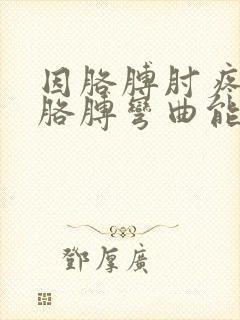 因胳膊肘疼
胳膊彎曲能
鄧厚廣